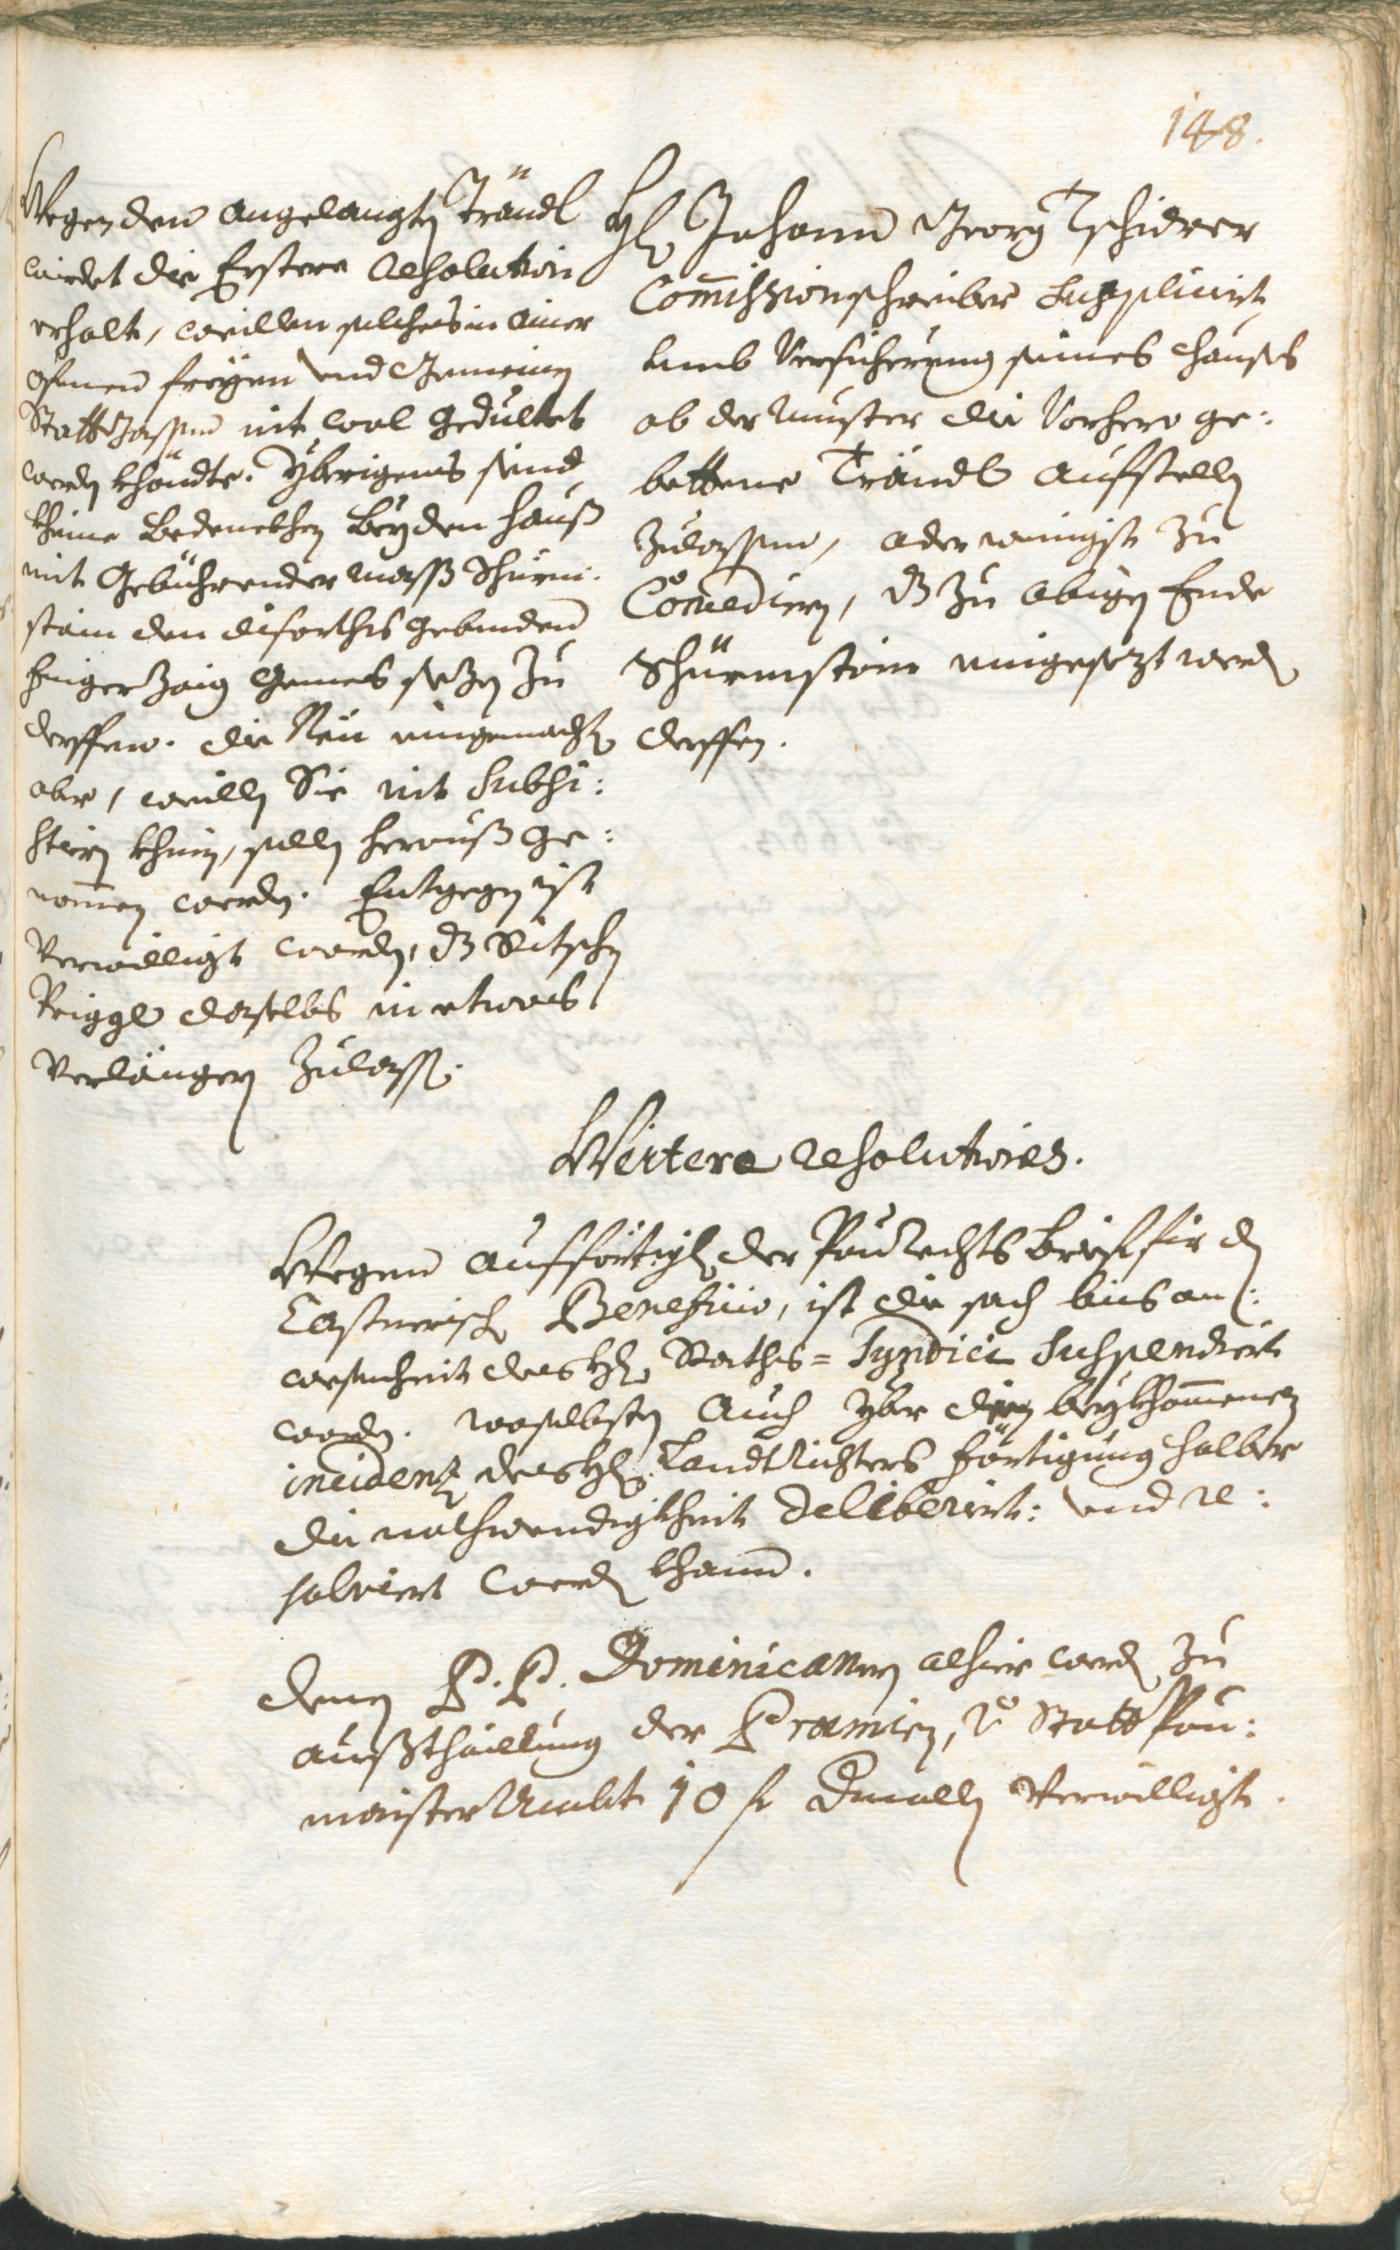 148.
Wegen dem angelangten Trändl
wirdet die Erstere Resolution
erhalt, weillen solches in einer
ofnen freyen und Gemeinen
Statt Gassen nit wol geduldet
werden khöndte. Yberigens seind
kheine Bedenckhen bey dem hauß
mit Gebührender mass Schürm-
stain den diforthis gebenden
fingerzaig Gemes sezen zu
derffen. die Neu eingemachte
aber, weillen Sie nit Subsi:
stiern khinen, sollen herauß ge:
nommen werden. Entgegen ist
Verwilligt worden, dz
Riggl daselbs in etwas
Verlängern zulassen.
Hr. Johann Georg Tschiderer
Commissionschreiber Supplicirt
umb Versicherung seines Hauses
ob der Muster die Vorhero ge:
bettene Trändl aufstellen
zulassen, oder wenigist zu
Comedirn, dz zu obigen Ende
Schürmstain eingesezt werden
derffen.
Weitere Resolutiones.
Wegen aufförtigung der Paurechts brief für den
Castnerischen Beneficio, ist die sach bis an:
wesenheit des Hr. Raths=Syndici Suspendiert
worden. woselbsten auch yber die beykhommenen
incidenz des Hr. Landtrichters förtigung halber
die nothwendigkheit deliberirt: und re:
solviert werden khann.
denen P.P. Dominicanern alhier werden zu
außthaillung der Præmien, vom Statt Pau:
maister Ambt 10 fl. Dmallen Verwilligt.